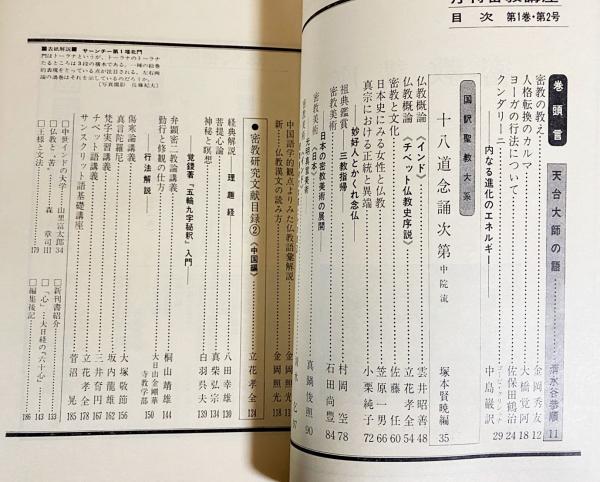 月刊密教講座
目次 第1巻・第2号
巻頭言 天台大師の語 清水谷恭順 11
密教の教え 金岡秀友 12
人格転換のカルマ 大橋覚阿 18
ヨーガの行法について 佐保田鶴治 24
クンダリーニー 内なる進化のエネルギー 中島巌訳 29
国訳聖教大系
十八道念誦次第 中院流 塚本賢暁編 35
仏教概論《インド》 雲井昭善 48
仏教概論《チベット仏教史序説》 立花孝全 54
密教と文化 佐藤任 60
日本史にみる女性と仏教 笠原一男 66
真宗における正統と異端 小栗純子 72
妙好人とかくれ念仏
祖典鑑賞 三教指帰 村岡空 78
密教美術 日本の密教美術の展開 石田尚豊 84
密教美術《日本》 真鍋俊照 90
中国語学的観点よりみた仏教語彙解説 金岡照光 113
新・仏教漢文の読み方 金岡照光 118
●密教研究文献目録②《中国編》 立花孝全 124
経典解説 理趣経 八田幸雄 130
菩提心論 真柴弘宗 134
神秘と瞑想 白羽呉夫 139
覚鑁著『五輪九字秘釈』入門
弁顕密二教論講義 桐山靖雄 144
勤行と修観の仕方 大日山金剛華寺教学部 150
行法解説
傷寒論講義 大塚敬節 156
真言陀羅尼 坂内龍雄 162
梵字実習講義 三井奝円 167
チベット語講義 立花孝全 178
サンスクリット語基礎講座 菅沼晃 185
□中世インドの大学 山里富太郎 34
□仏教と「苦」 森章司 111
□王様と文法 179
□新刊書紹介 53
□「心」大日経の『六十心』 133 143
□編集後記 186
■表紙解説■ サーンチー第1塔北門
門はトーラナというが、トーラナのトーラナ
たるところは3段の横木である。一種の絵巻
的表現をとっている点が注目される。左右両
端の渦巻はそれを示しているのだろうか。
〔写真撮影 佐藤紀夫〕